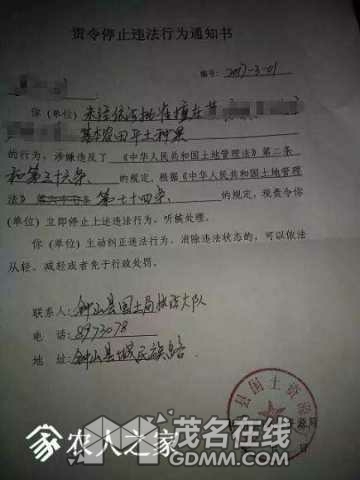 责令停止违法行为通知书
编号：2017-3-01
你（单位）未经依法批准擅在
基本农田平土种果
的行为，涉嫌违反了《中华人民共和国土地管理法》第二条
和第三十六条、的规定，根据《中华人民共和国土地管理
法》第七十四条、的规定，现责令你
（单位）立即停止上述违法行为，听候处理。
你（单位）主动纠正违法行为，消除违法状态的，可以依法
从轻、减轻或者免于行政处罚。
联系人：钟山县国土局执法大队
电 话：8973078
地 址：钟山县城民族路
县国土资源局
农人之家
茂名在线
GDMM.COM